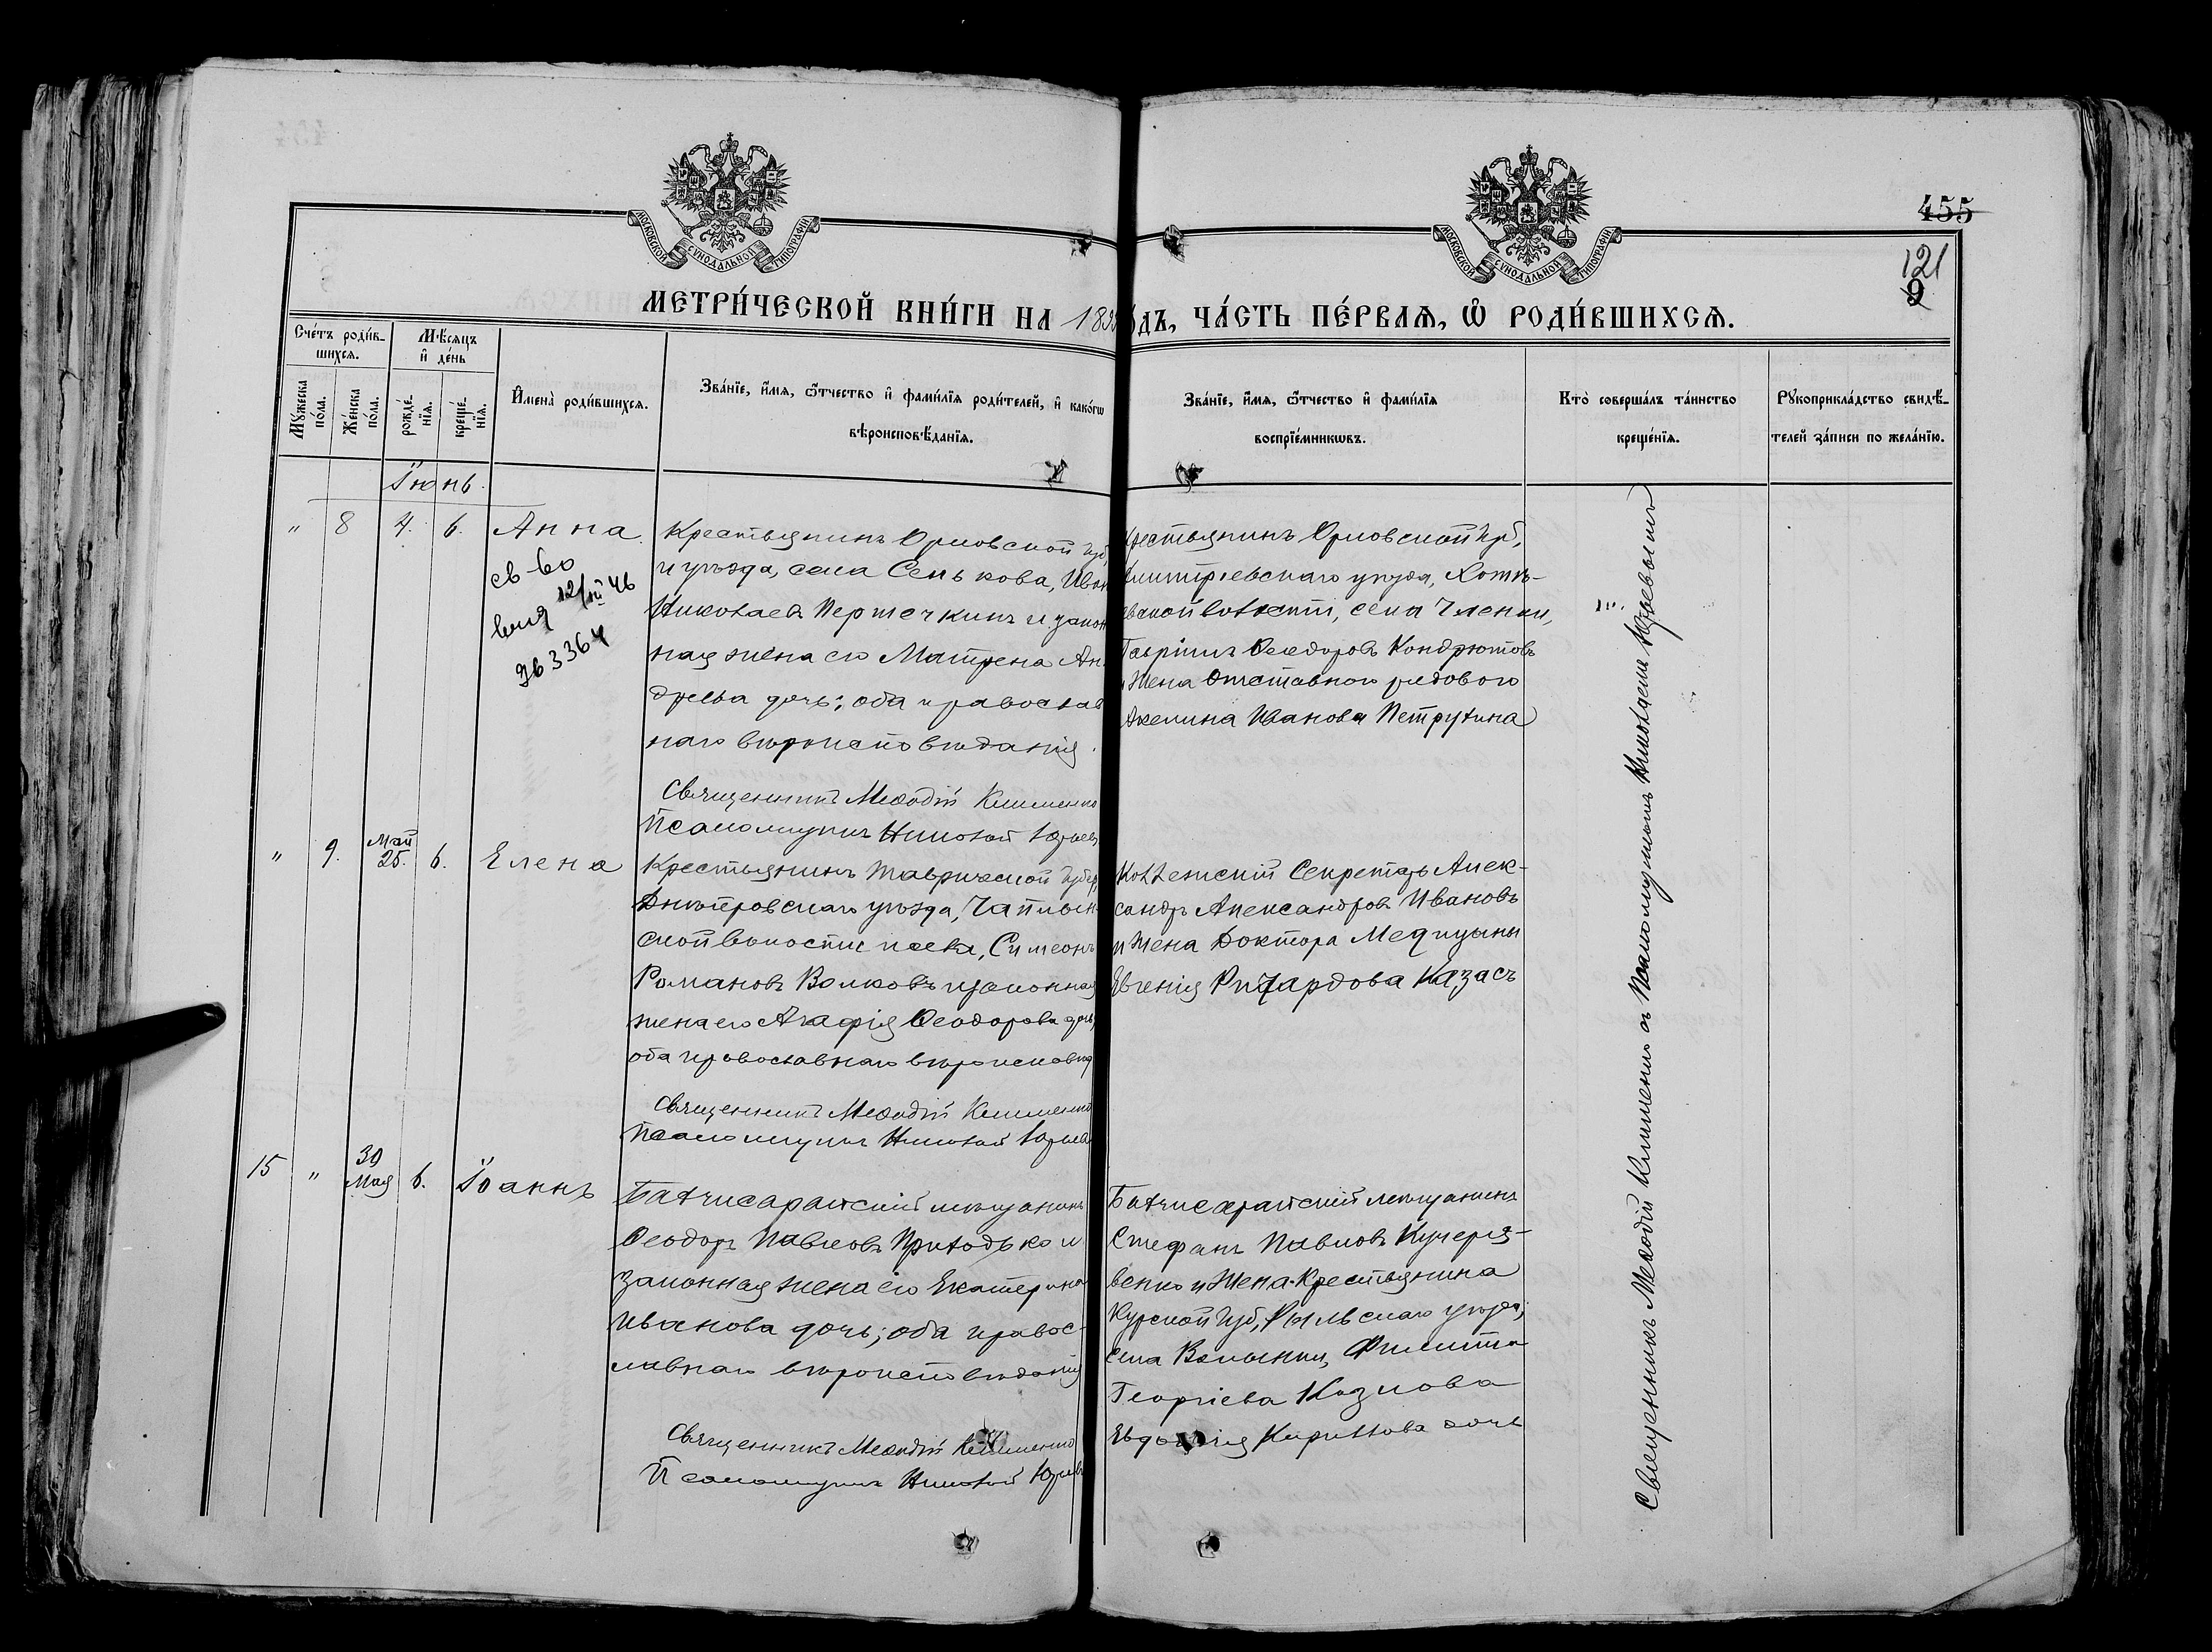 МОСКОВСКОЙ СѴНОДАЛЬНОЙ ТИПОГРАФІИ
МОСКОВСКОЙ СѴНОДАЛЬНОЙ ТИПОГРАФІИ
455
121
9
МЕТРИ́ЧЕСКОЙ КНИ́ГИ НА 189 ДЪ, ЧА́СТЬ ПЕ́РВАЯ, Ѡ҆ РОДИ́ВШИХСЯ.
Сче́тъ роди́в-
шихся.
Мѣ́сяцъ
и҆ де́нь
Мꙋ́жеска по́ла.
Же́нска по́ла.
рожде́-нїя.
креще́-нїя.
И҆мена̀ роди́вшихся.
Зва́нїе, и҆́мя, ѻ҆́тчество и҆ фами́лїя роди́телей, и҆ како́гѡ
вѣроисповѣ́данїя.
Зва́нїе, и҆́мя, ѻ҆́тчество и҆ фами́лїя
воспрїе́мникѡвъ.
Кто̀ соверша́лъ та́инство
креще́нїя.
Рꙋкоприкла́дство свидѣ́-
телей за́писи по жела́нїю.
Іюнь.
" 8 4. 6. Анна.
св-во
12/III 46
963364
Крестьянинъ Орловской губ,
и уѣзда, села Сенькова, Иван
Николаевъ Пертечкинъ и закон
ная жена его Матрена Ан-
дреева дочь; оба православ
наго вѣроисповѣданія.
Священникъ Меѳодій Клименко
Псаломщикъ Николай Юрьев
рестьянинъ Орловской губ,
митріевскаго уѣзда, Хотѣ-
вской волости, села Членки,
Гавріилъ Ѳеодоровъ Кондрютовъ
и жена отставного рядового
Акелина Иванова Петрухина
" 9. Май 25. 6. Елена
Крестьянинъ Таврической губер,
Днѣпровскаго уѣзда, Чаплын-
ской волости и села, Симеонъ
Романовъ Волковъ и законная
жена его Агафія Ѳеодорова дочь,
оба православнаго вѣроисповѣд
Священникъ Меѳодій Клименко
Псаломщикъ Николай Юрьев
Коллежскій Секретарь Алек-
сандръ Александровъ Ивановъ
и жена Доктора Медицины
Евгенія Ричардова Казасъ
15 " 30 Мая 6. Іоаннъ
Бахчисарайскій мѣщанинъ
Ѳеодоръ Павловъ Приходько и
законная жена его Екатерина
Иванова дочь; оба правос-
лавнаго вѣроисповѣданія
Священникъ Меѳодій Клименко
Псаломщикъ Николай Юрьев
Бахчисарайскій мѣщанинъ
Стефанъ Павловъ Кучеря-
венко и жена крестьянина
Курской губ, Рыльскаго уѣзда,
села Волынки,
Георгіева Козлова
Евдокія Кириллова дочь
Священникъ Меѳодій Клименко съ Псаломщикомъ Николаемъ Юрьевымъ